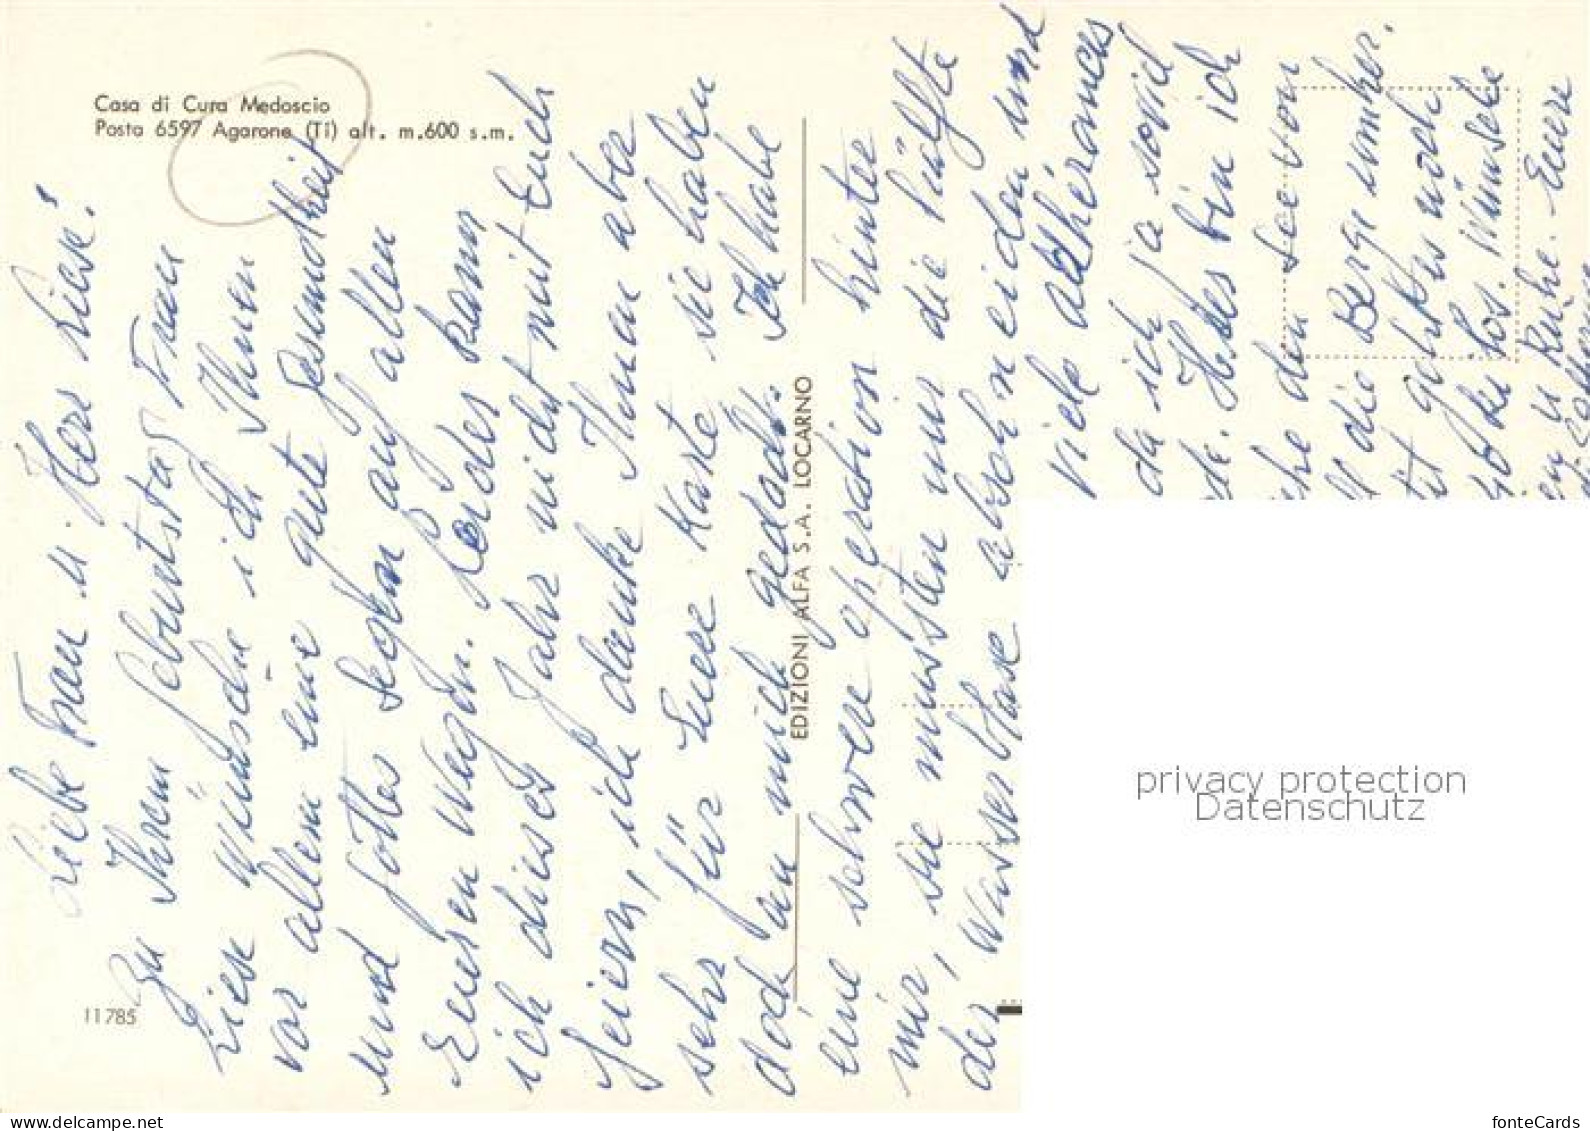 Casa di Cura Medoscio
Posta 6597 Agarone (Ti) alt. m.600 s.m.
11785
EDIZIONI ALFA S.A. LOCARNO
Liebe Frau u. Herr Liese!
Zu Ihrem Geburtstag Frau
Liese wünsche ich Ihnen
vor allem eine gute Gesundheit
und Gottes Segen auf allen
Euren Wegen. Leider kann
ich dieses Jahr nicht mit Euch
feiern, ich danke Ihnen aber
sehr für Eure Karte sie haben
doch an mich gedacht. Ich habe
eine schwere operation hinter
mir, sie mussten mir die hälfte
der Wasserblase abschneiden und
viele adhérances
da ich ja soviel
bin ich
den See von
die Berge
geht es noch
los. Wünsche
Ruhe. Eure
privacy protection
Datenschutz
www.delcampe.net
fonteCards